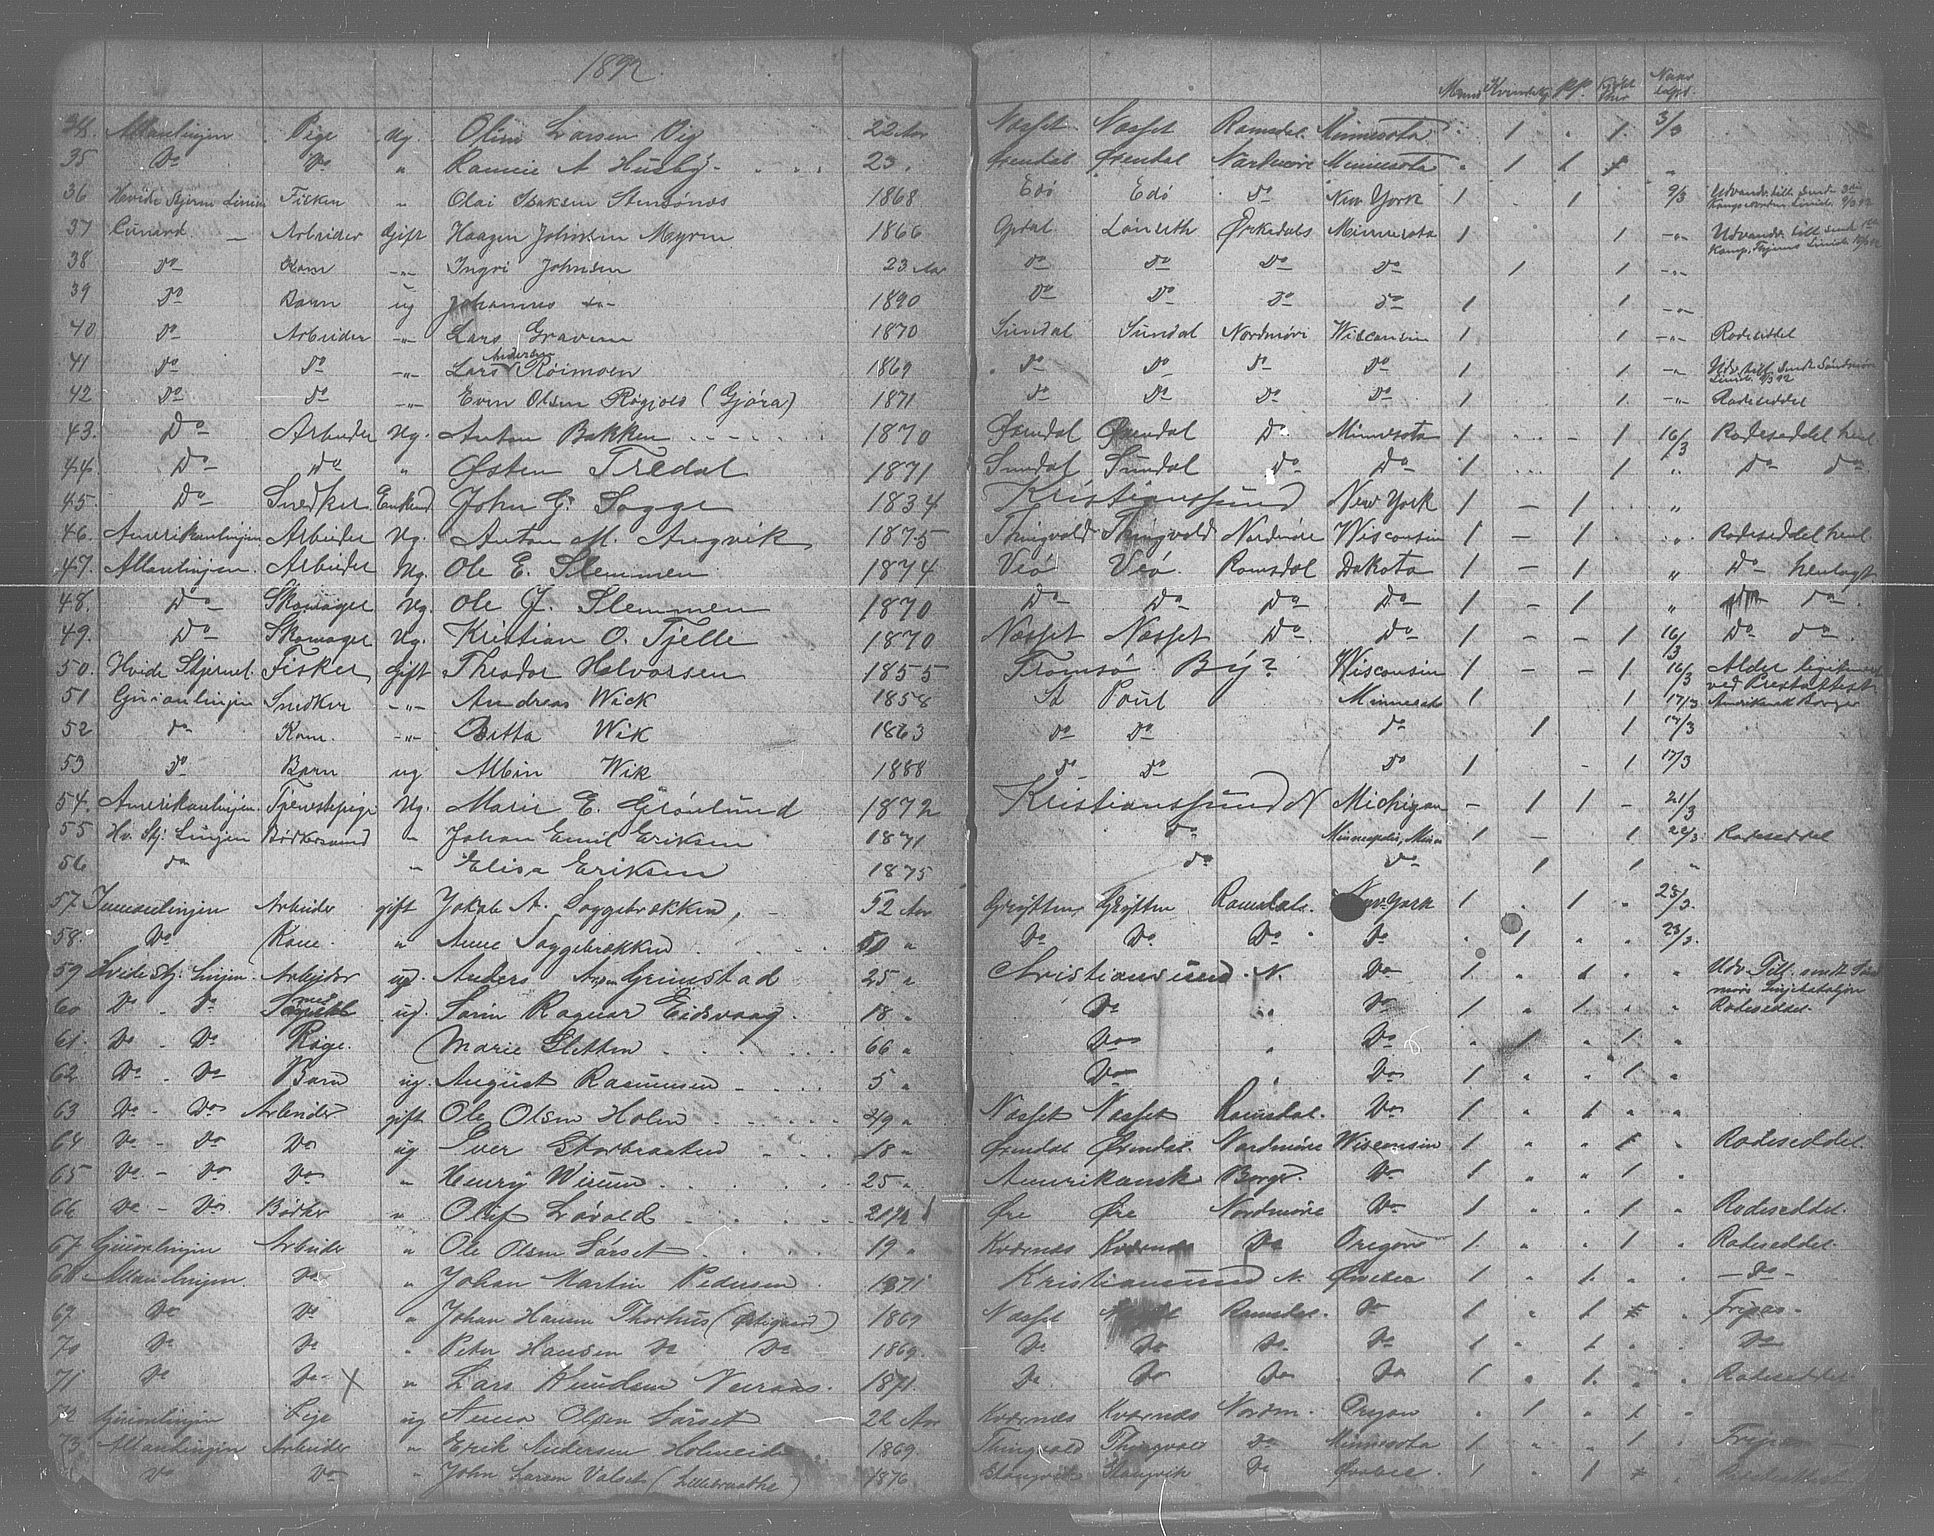 1892
Mand Kvinde
34. Allanlinjen Pige Ug. Oline Larsen Vig 22 Aar Nesset Nesset Romsdal Minnesota 1 1 3/3
35 Do Do " A Husby 23 Øxendal Øxendal Nordmøre Minnesota 1 1 "
36 Hvide Stjerne Linien Fisker " Olai Isaksen Stensønes 1868 Edø Edø Do New York 1 1 9/3
37 Cunard Arbeider Gift Haagen Johnsen Myren 1866 Opdal Lønseth Ørkedals Minnesota 1 1 -"-
38 Do Kone -"- Ingri Johnsen 23 Aar Do Do Do Do 1 1 -"-
39 Do Barn ug Johannes -"- 1890 Do Do Do Do 1 1 -"-
40 Do Arbeider -"- Lars Gravem 1870 Sundal Sundal Nordmøre Wisconsin 1 1 -"- Rodeseddel
41 Do Do -"- Lars Andersen Röimoen 1869 Do Do Do Do 1 1 -"-
42 Do Do -"- Even Olsen (Gjøra) 1871 Do Do Do Do 1 1 -"- Rodeseddel
43. Do Arbeider Ug. Anton Bakken 1870 Øxendal Øxendal Do Minnesota 1 1 16/3 Rodeseddel henl.
44 Do Do " Østen Tredal 1871 Sundal Sundal Do Do 1 1 " Do Do
45. Do Snedker Enkem. John G. Sogge 1834 Kristianssund New York 1 - 1 "
46. Amerikanlinjen Arbeider Ug. Anton M. Angvik 1875 Thingvold Thingvold Nordmøre Wisconsin 1 - 1 " Rodeseddel henl.
47. Allanlinjen. Arbeider Ug. Ole E. Slemmen 1874 Veø Veø Romsdal Dakota 1 - 1 " Do henlagt
48. Do Skomager Ug. Ole J. Slemmen 1870 Do Do Do Do 1 - 1 " Do.
49. Do Skomager Ug. Kristian O. Tjelle 1870 Nesset Nesset Do Do 1 - - 1 16/3 Do Do.
50. Hvide Stjernel. Fisker gift Theodor Halvorsen 1855 Tromsø By? Wisconsin 1 - - 1 16/3 Alder legitimeret ved Prestattest
51 Guionlinjen Snedker -"- Andreas Wick 1858 St Paul Minnesota 1 1 17/3 Amerikansk Borger
52 Do Kone. -"- Betta Wik 1863 Do Do Do 1 1 17/3
53 Do Barn ug Albin Wik 1888 Do Do Do 1 - 1 17/3
54. Amerikanlinjen. Tjenestepige Ug. Marie E. Grönlund 1872 Kristianssund N Michigan - 1 1 - 21/3
55 Hv. Stj. Linjen Bödkersvend " Johan Emil Eriksen 1871 Do Minneapolis, Minn 1 - 1 22/3 Rodeseddel
56 Do " Elisa Eriksen 1875 Do Do 1 1 "
57 Inmanlinjen Arbeider gift Jakob A. Soggebrekken, 52 Aar Grytten Grytten Romsdal. New York 1 1 23/3.
58. Do Kone. " Anne Soggebrekken 50 " Do Do Do Do 1 " " 23/3.
59 Hvide Stj. Linjen. Arbejder ug. Anders Grimstad 25 " Christianssund. N. Do 1 " 1 " "
60 Do - Do ug. Ragnar Eidsvaag. 18 " Do " Do 1 " 1 " " Rodeseddel.
61. Do - Do Pige. Marie Sletten 66 " Do " Do " 1 " 1 "
62 Do - Do Barn ug. August Rasmussen 5 " Do " Do 1 " " 1 "
63 Do - Do Arbeider gift Ole Olsen Holm 49 " Nesset Nesset Romsdal. Do 1 " 1 " "
64 Do - Do Do ug Iver Storbraaten 18 " Øxendal Øxendal. Nordmøre Wisconsin 1 " " 1 " Rodeseddel.
65 Do - Do Do " Henry Wiium 25 " Amerikansk Borger. Do 1 " " 1 "
66 Do - Do Bödker " Oluf Løvold 21 1/2 Øre Øre Nordmøre Do 1 " " 1 " Rodeseddel.
67 Guionlinjen Arbeider " Ole Olsen Sørset 19 " Kvernes Kvernes Do Oregon 1 " " 1 " Rodeseddel.
68 Allanlinjen Do " Johan Martin Pedersen 1871 Kristianssund N. Qvebec 1 " 1. " " - Do -
69 Do Do " Johan Hansen Thorhus 1869 Nesset Nesset Romsdal. Do 1 " 1 " Fripas -
70 Do Do " Peter Hansen Do Do 1869. Do Do Do. Do 1 " 1 " " Do
71 Do Do X " Lars Knudsen 1871. Do. Do Do Do 1 " 1. " " Rodeseddel
72 Guionlinjen Pige ug Anna Olsen Sørset 22 Aar Kvernes Kvernes Nordm. Oregon " 1 " 1 "
73 Allanlinjen Arbeider " Erik Andersen 1869 Thingvold Thingvold Do Minnesota 1 " " 1 " Fripas
Do Do " John Larsen Valset (Lillebraathe) 1876 Stangvik Stangvik Do Qvebec. 1 " 1